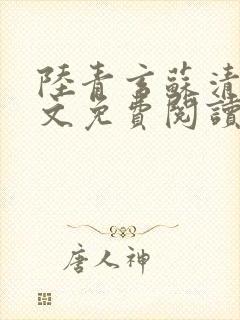 陸青言蘇清
文免費閱讀
唐人神